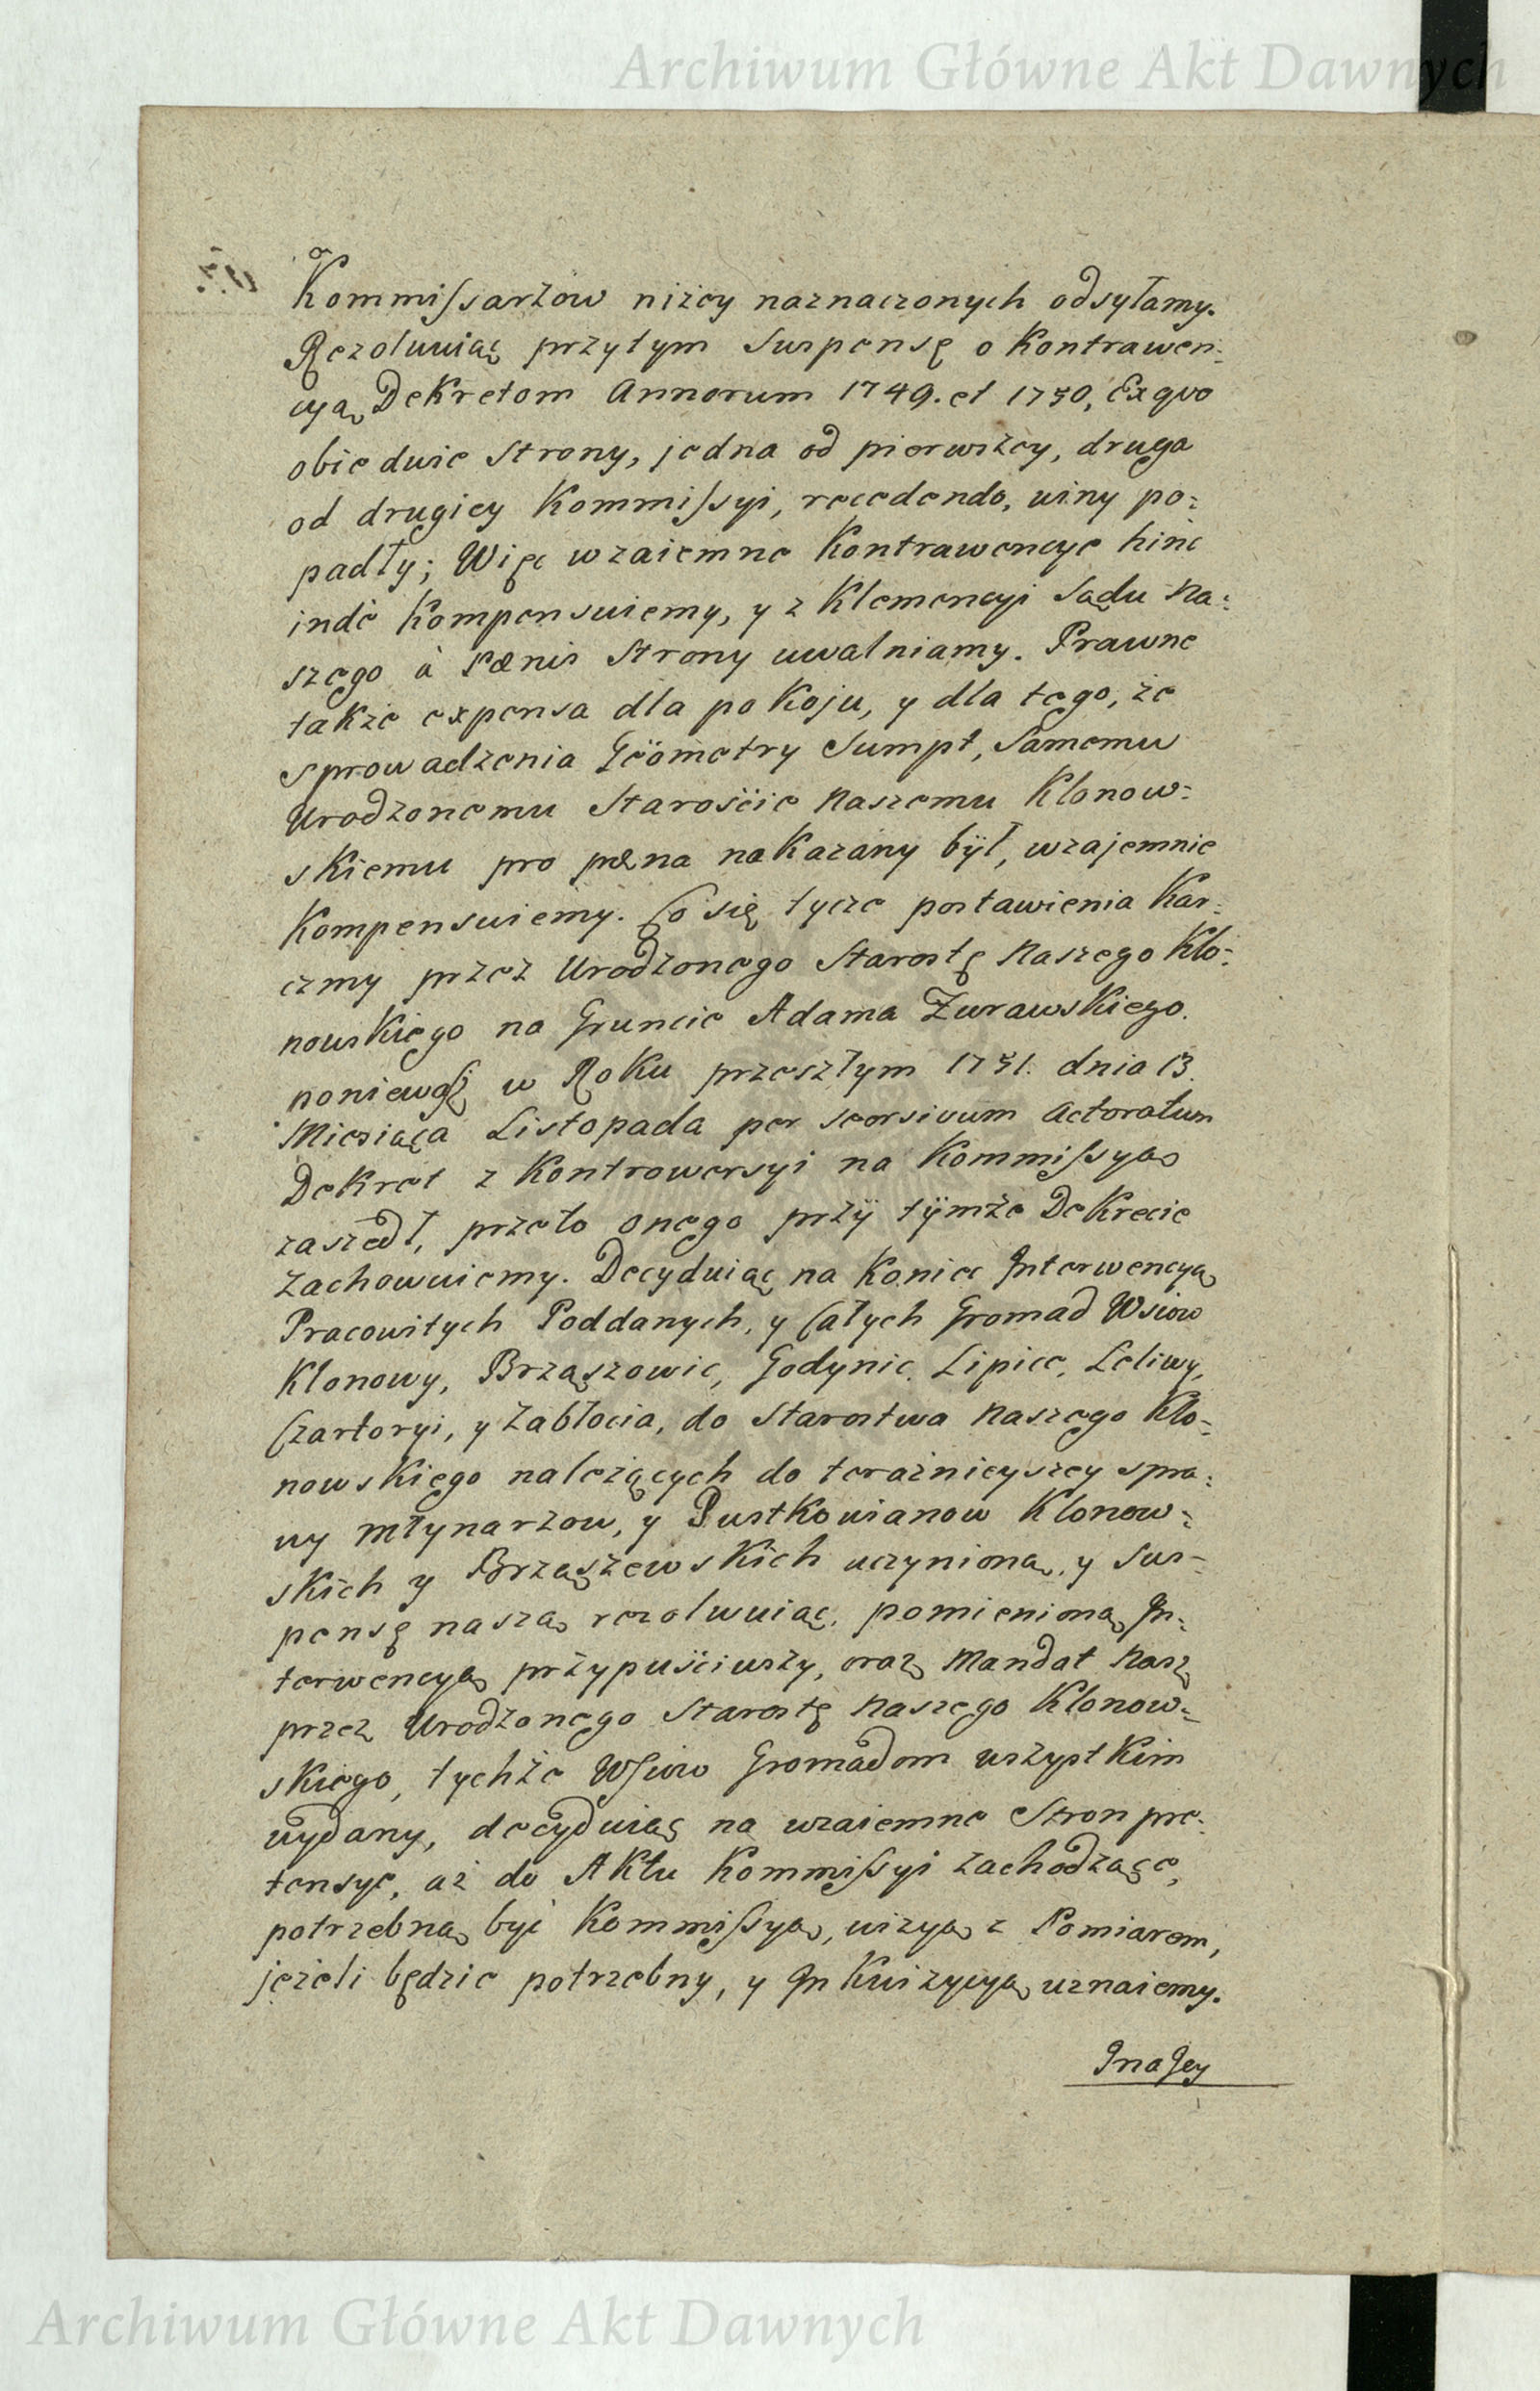 Archiwum Główne Akt Dawnych
Kommissarzow niżey naznaczonych odsyłamy.
Rezolwuiąc przytym Suspensę o Kontrawen=
cyą Dekretom Annorum 1749. et 1750, Ex quo
obie dwie Strony, jedna od pierwszey, druga
od drugiey Kommissyi, recedendo, winy po=
padły; Więc wzaiemne Kontrawencye hinc
indè Kompensuiemy, y z Klemencyi Sądu Na=
szego à Pænis Strony uwalniamy. Prawne
także expensa dla pokoju, y dla tego, że
sprowadzenia Geömetry Sumpt, Samemu
Urodzonemu Starośćie Naszemu Klonow=
skiemu pro pæna nakazany bÿł, wzajemnie
Kompensuiemy. Co się tycze postawienia Kar=
czmy przez Urodzonego Starostę Naszego Klo=
nowskiego na Gruncie Adama Zurawskiego.
poniewasz w Roku przeszłym 1751. dnia 13.
Miesiąca Listopada per seorsivum Actoratum
Dekret z Kontrowersyi na Kommissyą
zaszedł, przeto onego przÿ tÿmże Dekrecie
zachowuiemy. Decyduiąc na koniec Interwencyą
Pracowitych Poddanych, y Całych Gromad Wsiow
Klonowy, Brząszowic, Godynic, Lipicc, Leliwy,
Czartoryi, y Zabłocia, do Starostwa Naszego Klo=
nowskiego należących do teraźnieyszey spra=
wy Młynarzow, y Pustkowianow Klonow=
skich y Brząszewskich uczynioną, y Sus=
pensę naszą rezolwuiąc, pomienioną In=
terwencyą przypuśćiwszy, oraz Mandat Nasz
przez Urodzonego Starostę Naszego Klonow=
skiego, tychże Wsiow Gromadom wszystkim
wydany, decyduiąc na wzaiemne Stron pre=
tensye, aż do Aktu Kommissyi zachodzące,
potrzebną być Kommissyą, wizyą z Pomiarem,
jeżeli będzie potrzebny, y Inkwizycyą uznaiemy.
Archiwum Główne Akt Dawnych